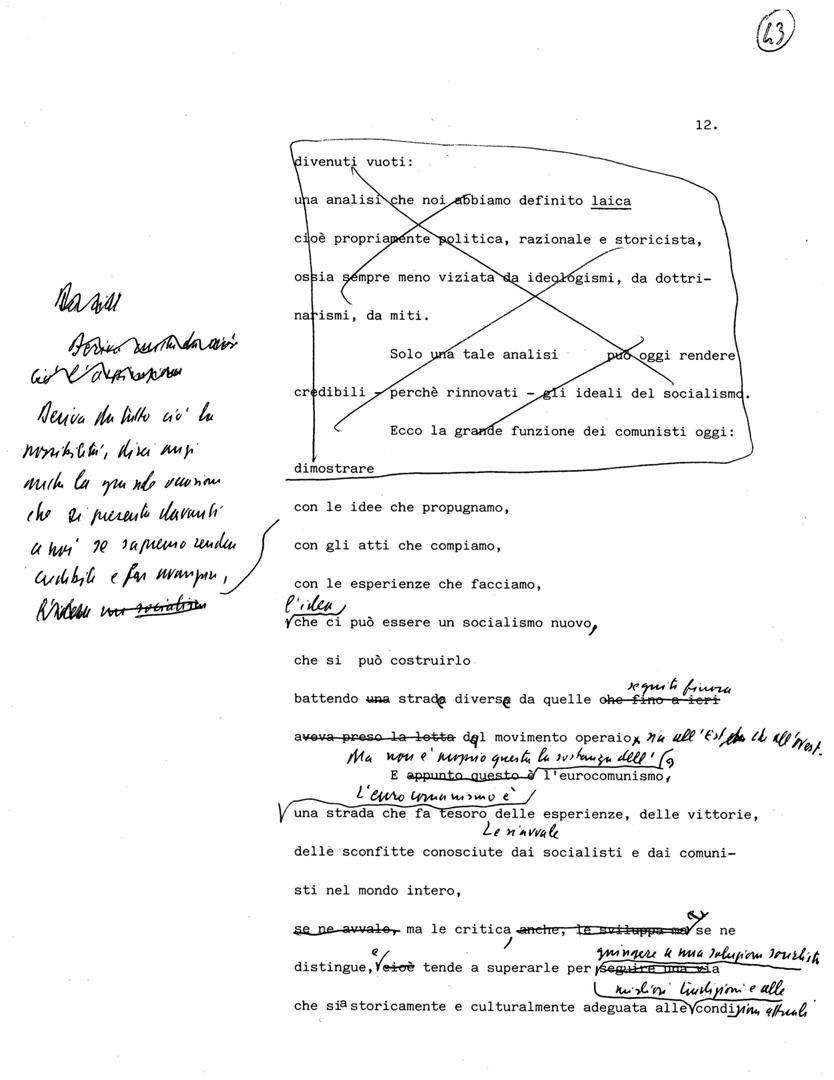 43
12.
divenuti vuoti:
una analisi che noi abbiamo definito laica
cioè propriamente politica, razionale e storicista,
ossia sempre meno viziata da ideologismi, da dottri-
narismi, da miti.
Solo una tale analisi può oggi rendere
credibili - perchè rinnovati - gli ideali del socialismo.
Ecco la grande funzione dei comunisti oggi:
dimostrare
Deriva da tutto ciò la
possibilità, direi anzi
anche la grande occasione
che si presenta davanti
a noi se sapremo rendere
credibile e far avanzare,
con le idee che propugnamo,
con gli atti che compiamo,
con le esperienze che facciamo,
l'idea
che ci può essere un socialismo nuovo,
che si può costruirlo
seguite finora
battendo una strade diverse da quelle che fino a ieri
aveva preso la lotta del movimento operaio, sia all'Est che all'Ovest.
Ma non è proprio questa la sostanza dell'
E appunto questo è l'eurocomunismo,
L'eurocomunismo è
una strada che fa tesoro delle esperienze, delle vittorie,
se n'avvale
delle sconfitte conosciute dai socialisti e dai comuni-
sti nel mondo intero,
se ne avvale, ma le critica, anche, le sviluppa ma se ne
giungere a una soluzione socialista
distingue, e cioè tende a superarle per seguire una via
migliori tradizioni e alle
che sia storicamente e culturalmente adeguata alle condizioni attuali